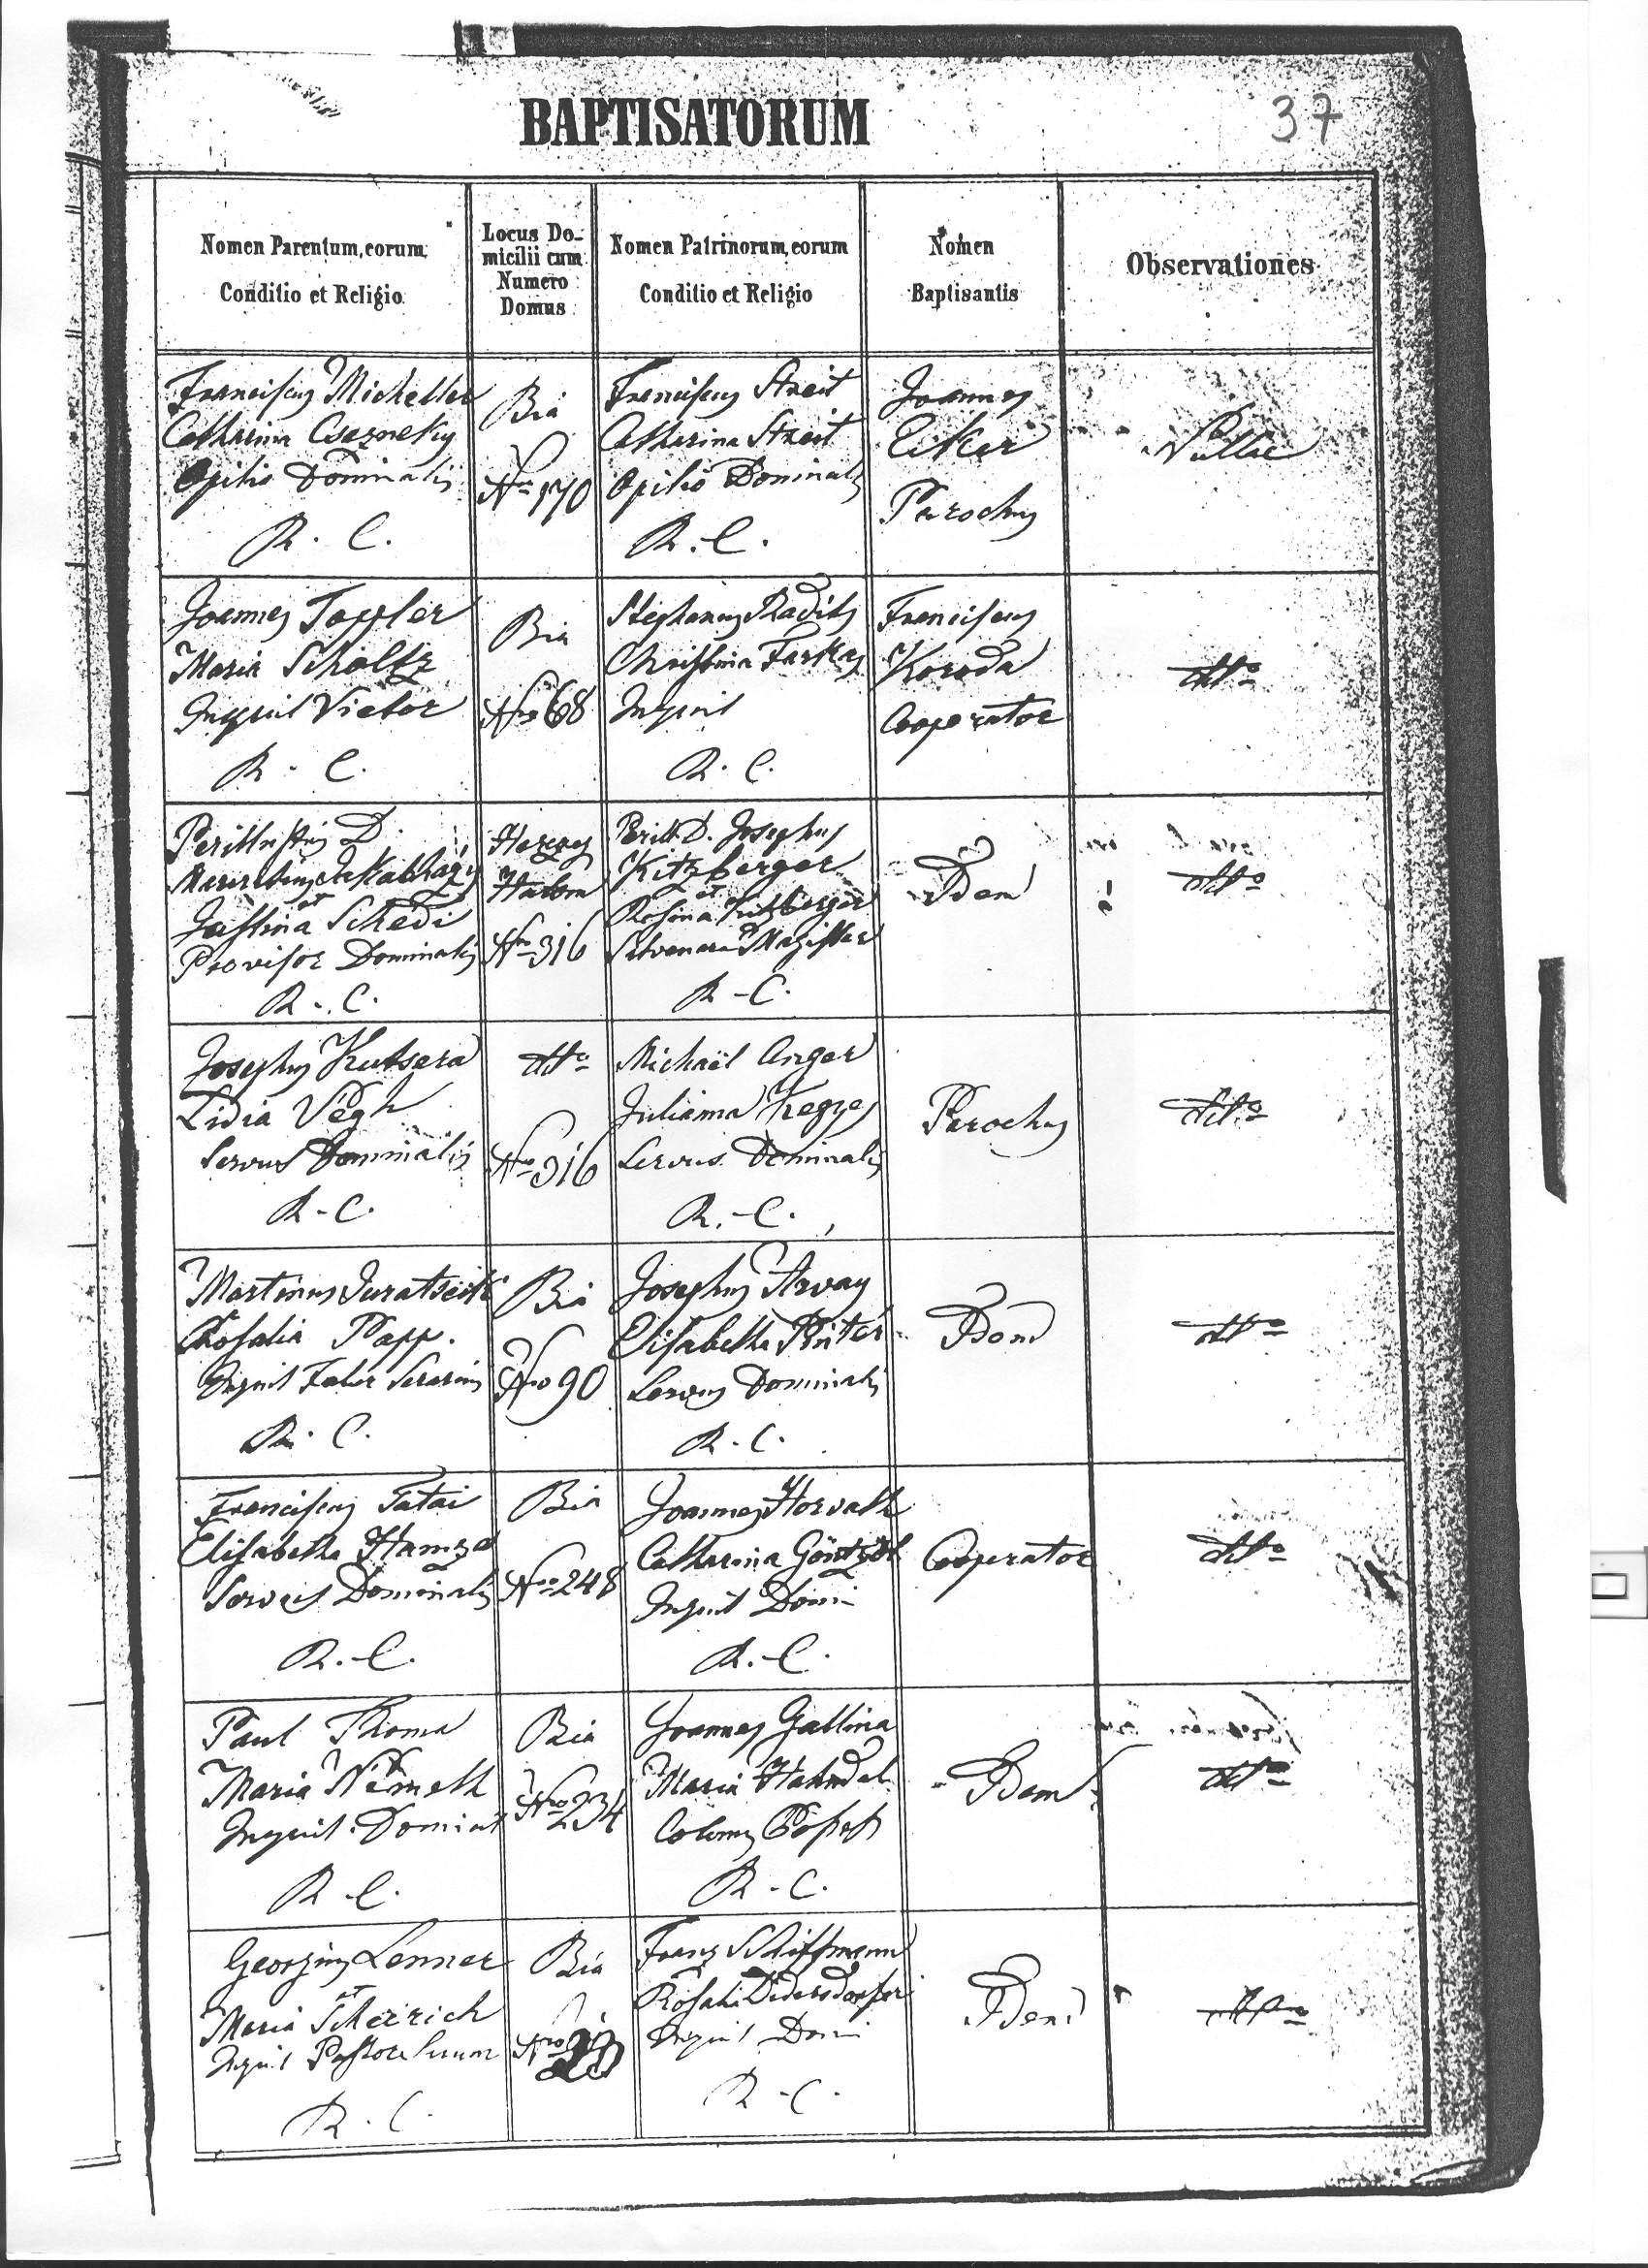 BAPTISATORUM
37
Nomen Parentum, eorum
Conditio et Religio
Locus Do-
micilii cum
Numero
Domus
Nomen Patrinorum, eorum
Conditio et Religio
Nomen
Baptisantis
Observationes
Franciscus Micheller
Catharina Csezneky
Opilio Dominalis
R. C.
Bia
Nro 170
Franciscus Streit
Catharina Streit
Opilio Dominalis
R. C.
Joannes
Eiker
Parochus
Nullae
Joannes Toppler
Maria Scholtz
Inquil Vietor
R. C.
Bia
Nro 68
Stephanus Radits
Christina Farkas
Inquil
R. C.
Franciscus
Koroda
Cooperator
dtto
Perillustris D.
et
Justina Schedi
Provisor Dominalis
R. C.
Herczeg
Halom
Nro 316
Perill. D. Josephus
Kitzberger
et
Rosina Kitzberger
Silvanus Magister
R. C.
Idem
dtto
Josephus Kutsera
Lidia Végh
Servus Dominalis
R. C.
dtto
Nro 316
Michaël Anger
Julianna Kegyes
Servus Dominalis
R. C.
Parochus
dtto
Martinus Juratseik
Rosalia Papp.
Inquil Faber Serarius
R. C.
Bia
Nro 90
Josephus Arvay
Elisabetha Pinter
Servus Dominalis
R. C.
Idem
dtto
Franciscus Tatai
Elisabetha Hamza
Servus Dominalis
R. C.
Bia
Nro 248
Joannes Horvath
Catharina Göntzöl
Inquil Domi
R. C.
Cooperator
dtto
Paul Thoma
Maria Németh
Inquil. Dominal
R. C.
Bia
Nro 234
Joannes Gallina
Maria Hahndel
Colonus
R. C.
Idem
dtto
Georgius Lenner
et
Maria Scheirich
Inquil
R. C.
Bia
Nro
Franz Schiffmann
Rosalia Dedersdorfer
Inquil Domi
R. C.
Idem
dtto